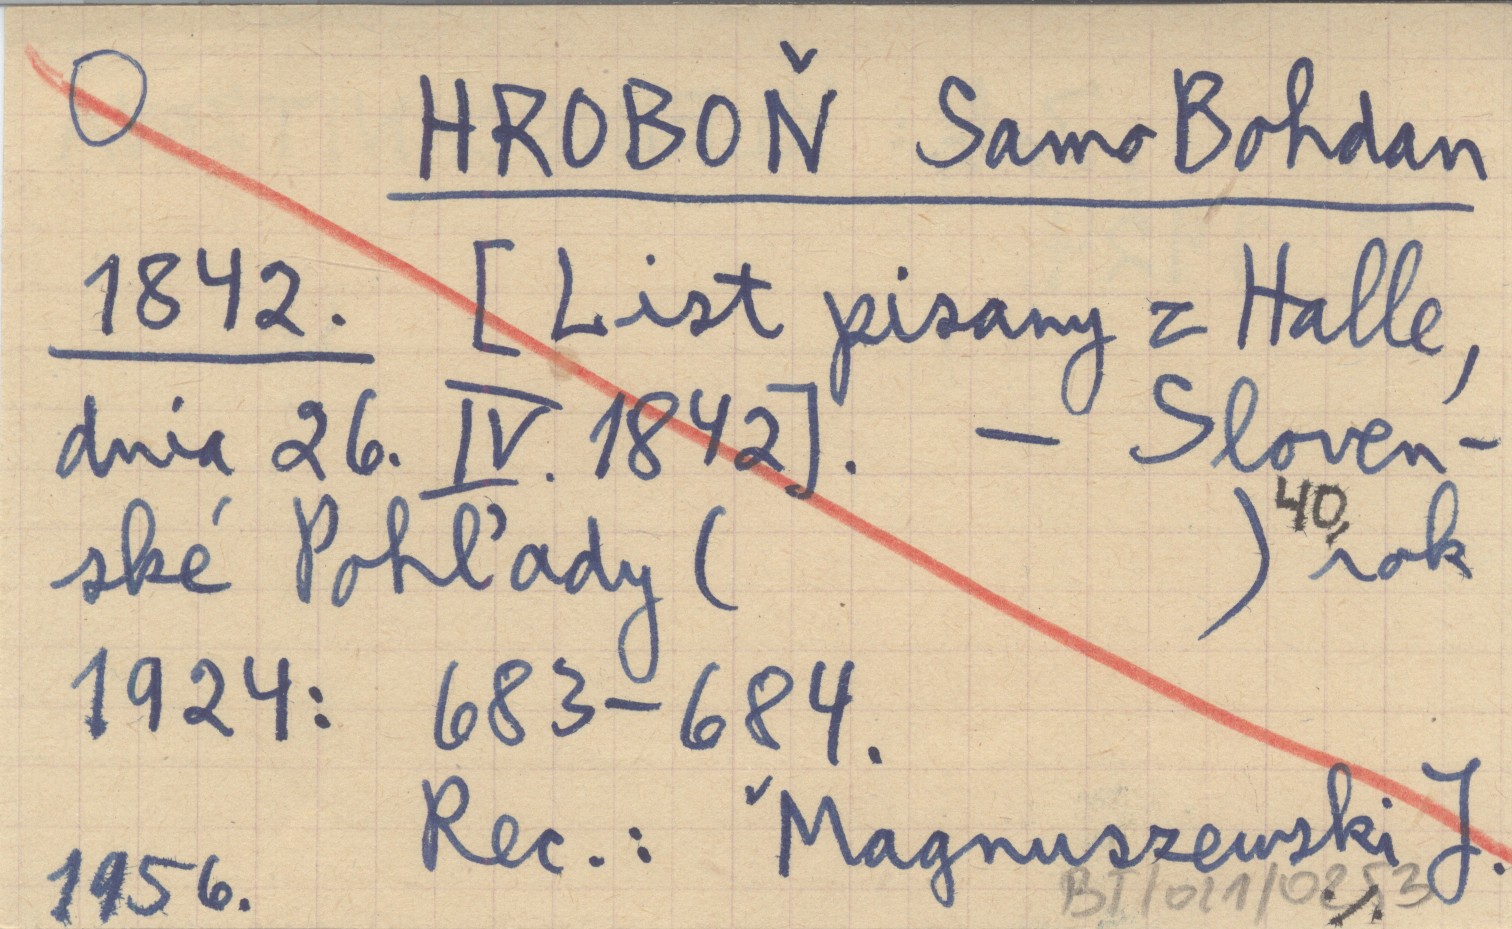 HROBOŇ Samo Bohdan
1842. [List pisany z Halle,
dnia 26. IV. 1842]. — Sloven-
ské Pohľady ( ) 40, rok
1924: 683-684.
Rec.: Magnuszewski J.
1956.
BT/011/0253